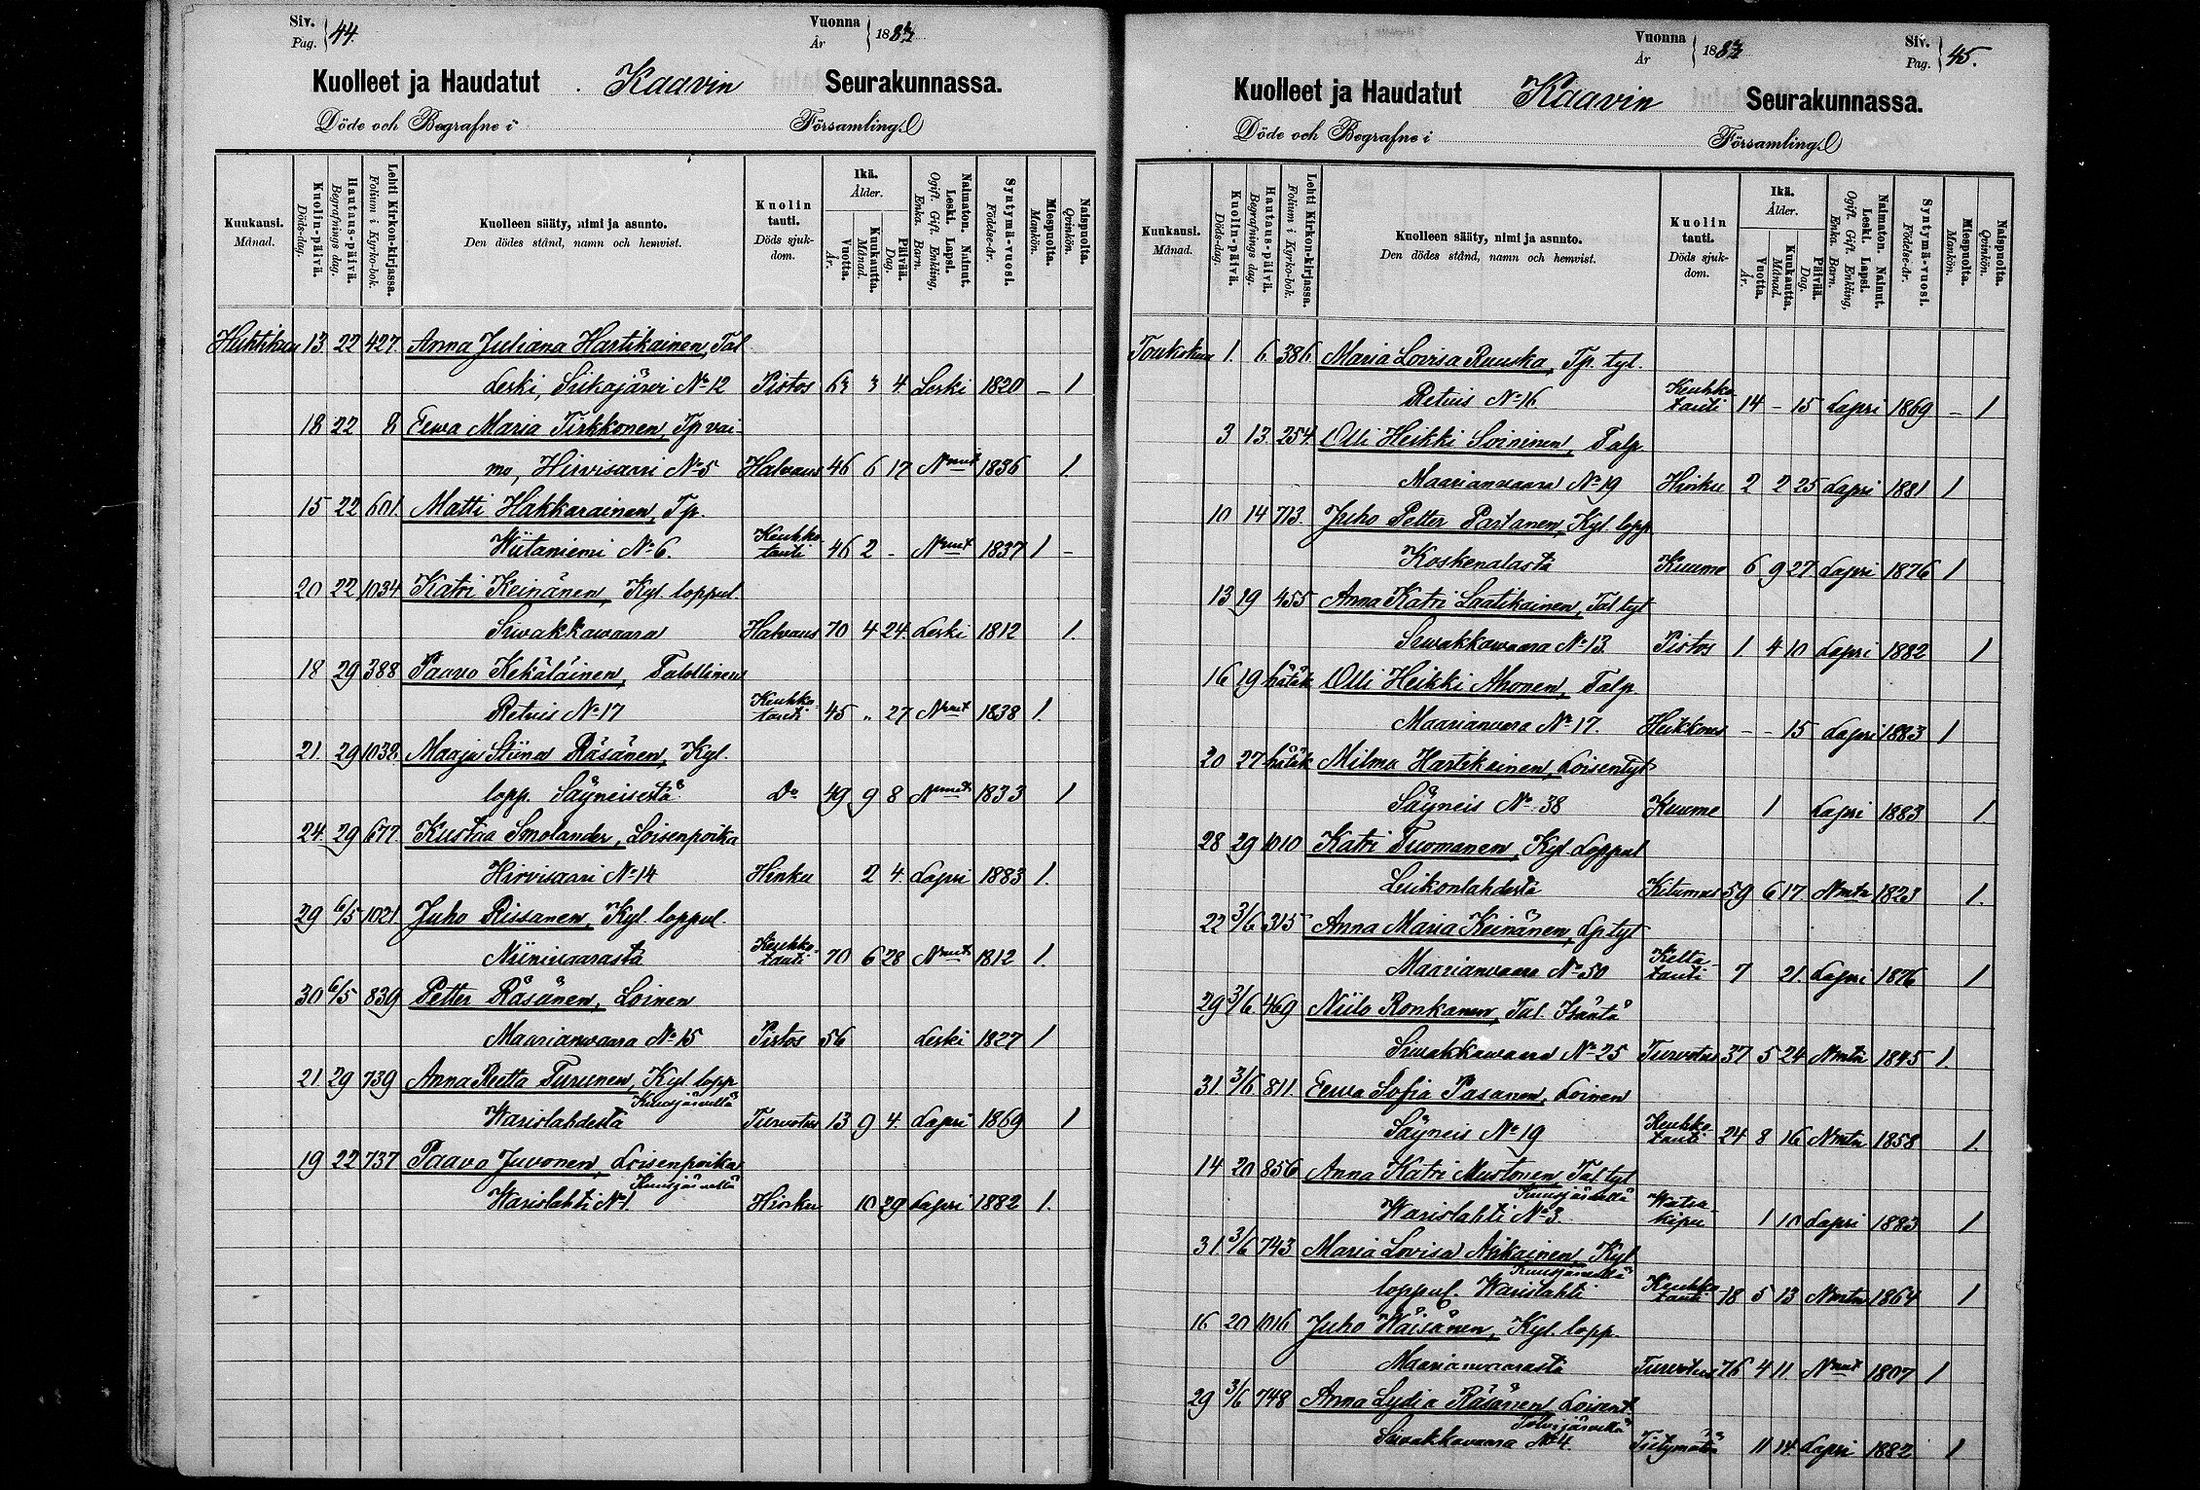 Siv. Pag. 44.
Vuonna År 1883
Kuolleet ja Haudatut Kaavin Seurakunnassa.
Döde och Begrafne i Församling.
Kuukausi. Månad.
Kuolin-päivä. Döds-dag.
Hautaus-päivä. Begrafnings dag.
Lehti Kirkon-kirjassa. Folium i Kyrko-bok.
Kuolleen sääty, nimi ja asunto. Den dödes stånd, namn och hemvist.
Kuolin tauti. Döds sjuk-dom.
Ikä. Ålder.
Vuotta. År.
Kuukautta. Månad.
Päivää. Dag.
Naimaton. Nainut. Leski. Lapsi. Ogift. Gift. Enkling, Enka. Barn.
Syntymä-vuosi. Födelse-år.
Miespuolta. Mankön.
Naispuolta. Qvinkön.
Huhtikuu 13. 22 427. Anna Juliana Hartikainen, Tal
Leski, Siikajärvi No 12 Pistos 63 3 4 Leski 1820 - 1
18 22 8 Eewa Maria Tirkkonen, Tp vai-
mo, Hirvisaari No 5 Halvaus 46 6 17 Nnut 1836 1.
15 22 601. Matti Hakkarainen, Tp.
Wiitaniemi No 6. Keuhko-tauti 46 2 - Nnut 1837 1 -
20 22 1034 Katri Keinänen, Kyl. loppul
Siwakkawaara Halvaus 70 4 24. Leski 1812 1.
18 29 388 Paavo Kekäläinen, Talollinen
Retuis No 17 Keuhko-tauti 45 „ 27 Nnut 1838 1.
21. 29 1038 Maaja Stiina Räsänen, Kyl.
lopp. Säyneisestä Do 49 9 8 Nnut 1833 1
24. 29 677. Kustaa Smolander, Loisenpoika
Hirvisaari No 14 Hinku 2 4. Lapsi 1883 1.
29 6/5 1021. Juho Rissanen, Kyl. loppul.
Niinivaarasta Keuhko-tauti 70 6 28 Nnut 1812 1.
30 6/5 839 Petter Räsänen, Loinen
Maarianwaara No 15 Pistos 56 Leski 1827 1
21 29 739 Anna Reetta Turunen, Kyl. lopp
Kuusjärvellä
Warislahdesta Turvotus 13 9 4. Lapsi 1869 1
19 22 737 Paavo Juvonen, Loisenpoika
Kuusjärvellä
Warislahti No 1. Hinku 10 29 Lapsi 1882 1.
Vuonna År 1883
Siv. Pag. 45.
Kuolleet ja Haudatut Kaavin Seurakunnassa.
Döde och Begrafne i Församling.
Kuukausi. Månad.
Kuolin-päivä. Döds-dag.
Hautaus-päivä. Begrafnings dag.
Lehti Kirkon-kirjassa. Folium i Kyrko-bok.
Kuolleen sääty, nimi ja asunto. Den dödes stånd, namn och hemvist.
Kuolin tauti. Döds sjuk-dom.
Ikä. Ålder.
Vuotta. År.
Kuukautta. Månad.
Päivää. Dag.
Naimaton. Nainut. Leski. Lapsi. Ogift. Gift. Enkling, Enka. Barn.
Syntymä-vuosi. Födelse-år.
Miespuolta. Mankön.
Naispuolta. Qvinkön.
Toukokuu 1. 6 386 Maria Lovisa Ruuska, Tp. tyt.
Retuis No 16 Keuhko-tauti 14 - 15 Lapsi 1869 - 1
3 13. 254. Olli Heikki Soininen, Talp.
Maarianvaara No 19 Hinku 2 2 25 Lapsi 1881 1
10 14 713. Juho Petter Partanen, Kyl. lopp
Koskenalasta Kuume 6 9 27. Lapsi 1876 1
13 19 455 Anna Katri Laatikainen, Tal tyt
Siwakkawaara No 13. Pistos 1 4 10 Lapsi 1882 1
16 19 hätäk Olli Heikki Ahonen, Talp.
Maarianvara No 17. Heikkous - - 15 Lapsi 1883 1
20 27 hätäk Milma Hartikainen, Loisentyt
Säyneis No 38 Kuume 1 Lapsi 1883 1
28 29 1010 Katri Tuomanen, Kyl. Loppul
Luikonlahdesta Kitumus 59 6 17. Nmtn 1823 1.
22 3/6 315 Anna Maria Keinänen, Lp tyt
Maarianvaara No 50 Kelta-tauti 7 21. Lapsi 1876 1
29 3/6. 469 Niilo Ronkanen, Tal. Isäntä
Siwakkawaara No 25 Turvotus 37 5 24 Nmtn 1845 1.
31 3/6 811. Eewa Sofia Pasanen, Loinen
Säyneis No 19 Keuhko-tauti 24 8 16 Nmtn 1858 1.
14 20 856 Anna Katri Mustonen, Tal tyt
Kuusjärvellä
Warislahti No 3. Watsa-kipu 1 10 Lapsi 1883 1
31 3/6 743 Maria Lovisa Kyl
Kuusjärvellä
loppul. Warislahti Keuhko-tauti 18 5 13 Nmtn 1864 1
16 20 1016 Juho Wäisänen, Kyl. lopp.
Maarianvaarasta Turvotus 76 4 11 Nnut 1807 1
29 3/6 748 Anna Lydia Räsänen, Loisent.
Siwakkavaara No 4. 11 14. Lapsi 1882 1